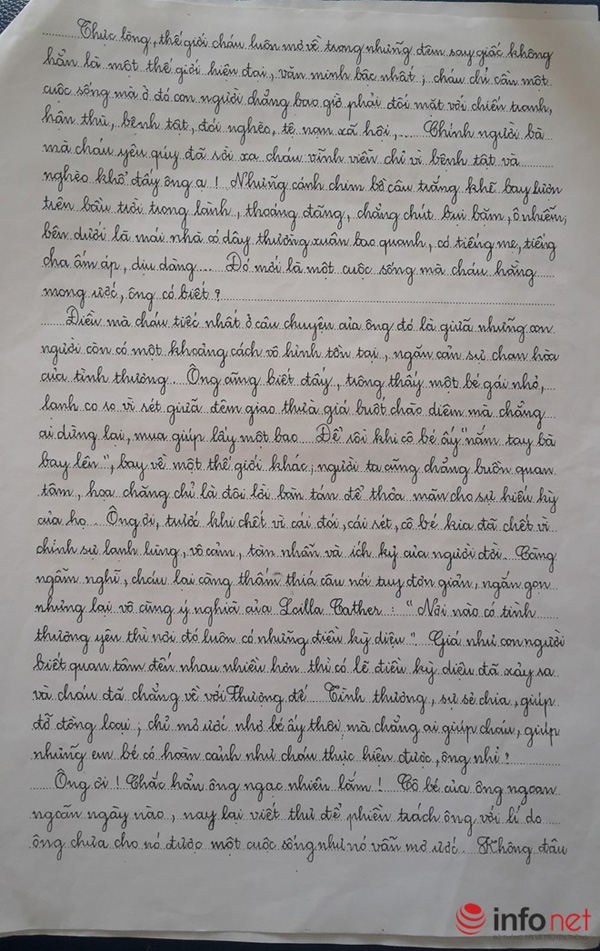 .........Thực lòng, thế giới cháu luôn mơ về trong những đêm say giấc không
hẳn là một thế giới hiện đại, văn minh bậc nhất ; cháu chỉ cần một
cuộc sống mà ở đó con người chẳng bao giờ phải đối mặt với chiến tranh,
hận thù, bệnh tật, đói nghèo, tệ nạn xã hội, .... Chính người bà
mà cháu yêu quý đã rời xa cháu vĩnh viễn chỉ vì bệnh tật và
nghèo khổ đấy ông ạ ! Những cánh chim bồ câu trắng khẽ bay lượn
trên bầu trời trong lành, thoáng đãng, chẳng chút bụi bặm, ô nhiễm;
bên dưới là mái nhà có dây thường xuân bao quanh, có tiếng mẹ, tiếng
cha ấm áp, dịu dàng.... Đó mới là một cuộc sống mà cháu hằng
mong ước, ông có biết ?
Điều mà cháu tiếc nhất ở câu chuyện của ông đó là giữa những con
người còn có một khoảng cách vô hình tồn tại, ngăn cản sự chan hòa
của tình thương. Ông cũng biết đấy, trông thấy một bé gái nhỏ,
lạnh co ro vì rét giữa đêm giao thừa giá buốt chào diêm mà chẳng
ai dừng lại, mua giúp lấy một bao. Để rồi khi cô bé ấy "nắm tay bà
bay lên", bay về một thế giới khác; người ta cũng chẳng buồn quan
tâm, họa chăng chỉ là đôi lời bàn tán để thỏa mãn cho sự hiếu kỳ
của họ. Ông ơi, trước khi chết vì cái đói, cái rét, cô bé kia đã chết vì
chính sự lạnh lùng, vô cảm, tàn nhẫn và ích kỷ của người đời. Càng
ngẫm nghĩ, cháu lại càng thấm thía câu nói tuy đơn giản, ngắn gọn
nhưng lại vô cùng ý nghĩa của Loilla Cather : "Nơi nào có tình
thương yêu thì nơi đó luôn có những điều kỳ diệu". Giá như con người
biết quan tâm đến nhau nhiều hơn thì có lẽ điều kỳ diệu đã xảy ra
và cháu đã chẳng về với Thượng đế. Tình thương, sự sẻ chia, giúp
đỡ đồng loại ; chỉ mơ ước nhỏ bé ấy thôi mà chẳng ai giúp cháu, giúp
những em bé có hoàn cảnh như cháu thực hiện được, ông nhỉ ?
Ông ơi ! Chắc hẳn ông ngạc nhiên lắm ! Cô bé của ông ngoan
ngoãn ngày nào, nay lại viết thư để phiền trách ông với lí do
ông chưa cho nó được một cuộc sống như nó vẫn mơ ước. Không đâu
infonet